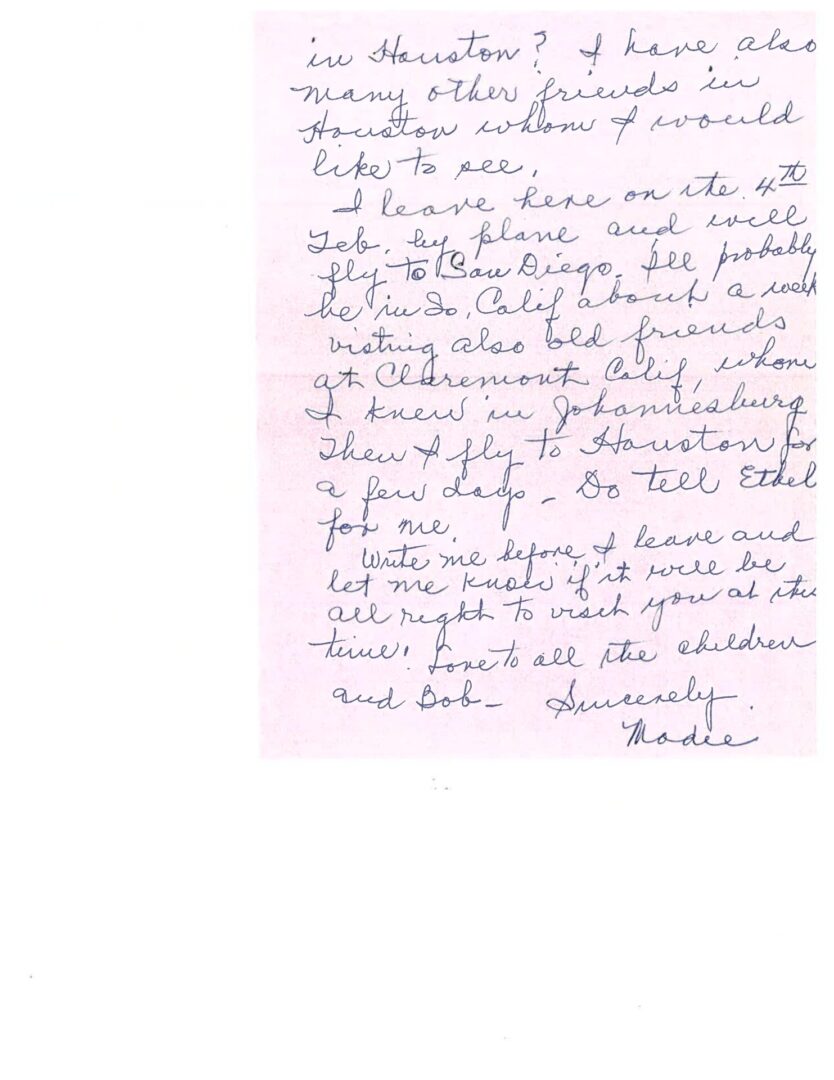 in Houston? I have also
many other friends in
Houston whom I would
like to see.
I leave here on the 4th
Feb. by plane and will
fly to San Diego. I'll probably
be in So. Calif about a week
visting also old friends
at Claremont Calif, whom
I knew in Johannesburg
Then I fly to Houston for
a few days - Do tell Ethel
for me.
Write me before I leave and
let me know if it will be
all right to visit you at this
time! Love to all the children
and Bob - Sincerely.
Madie